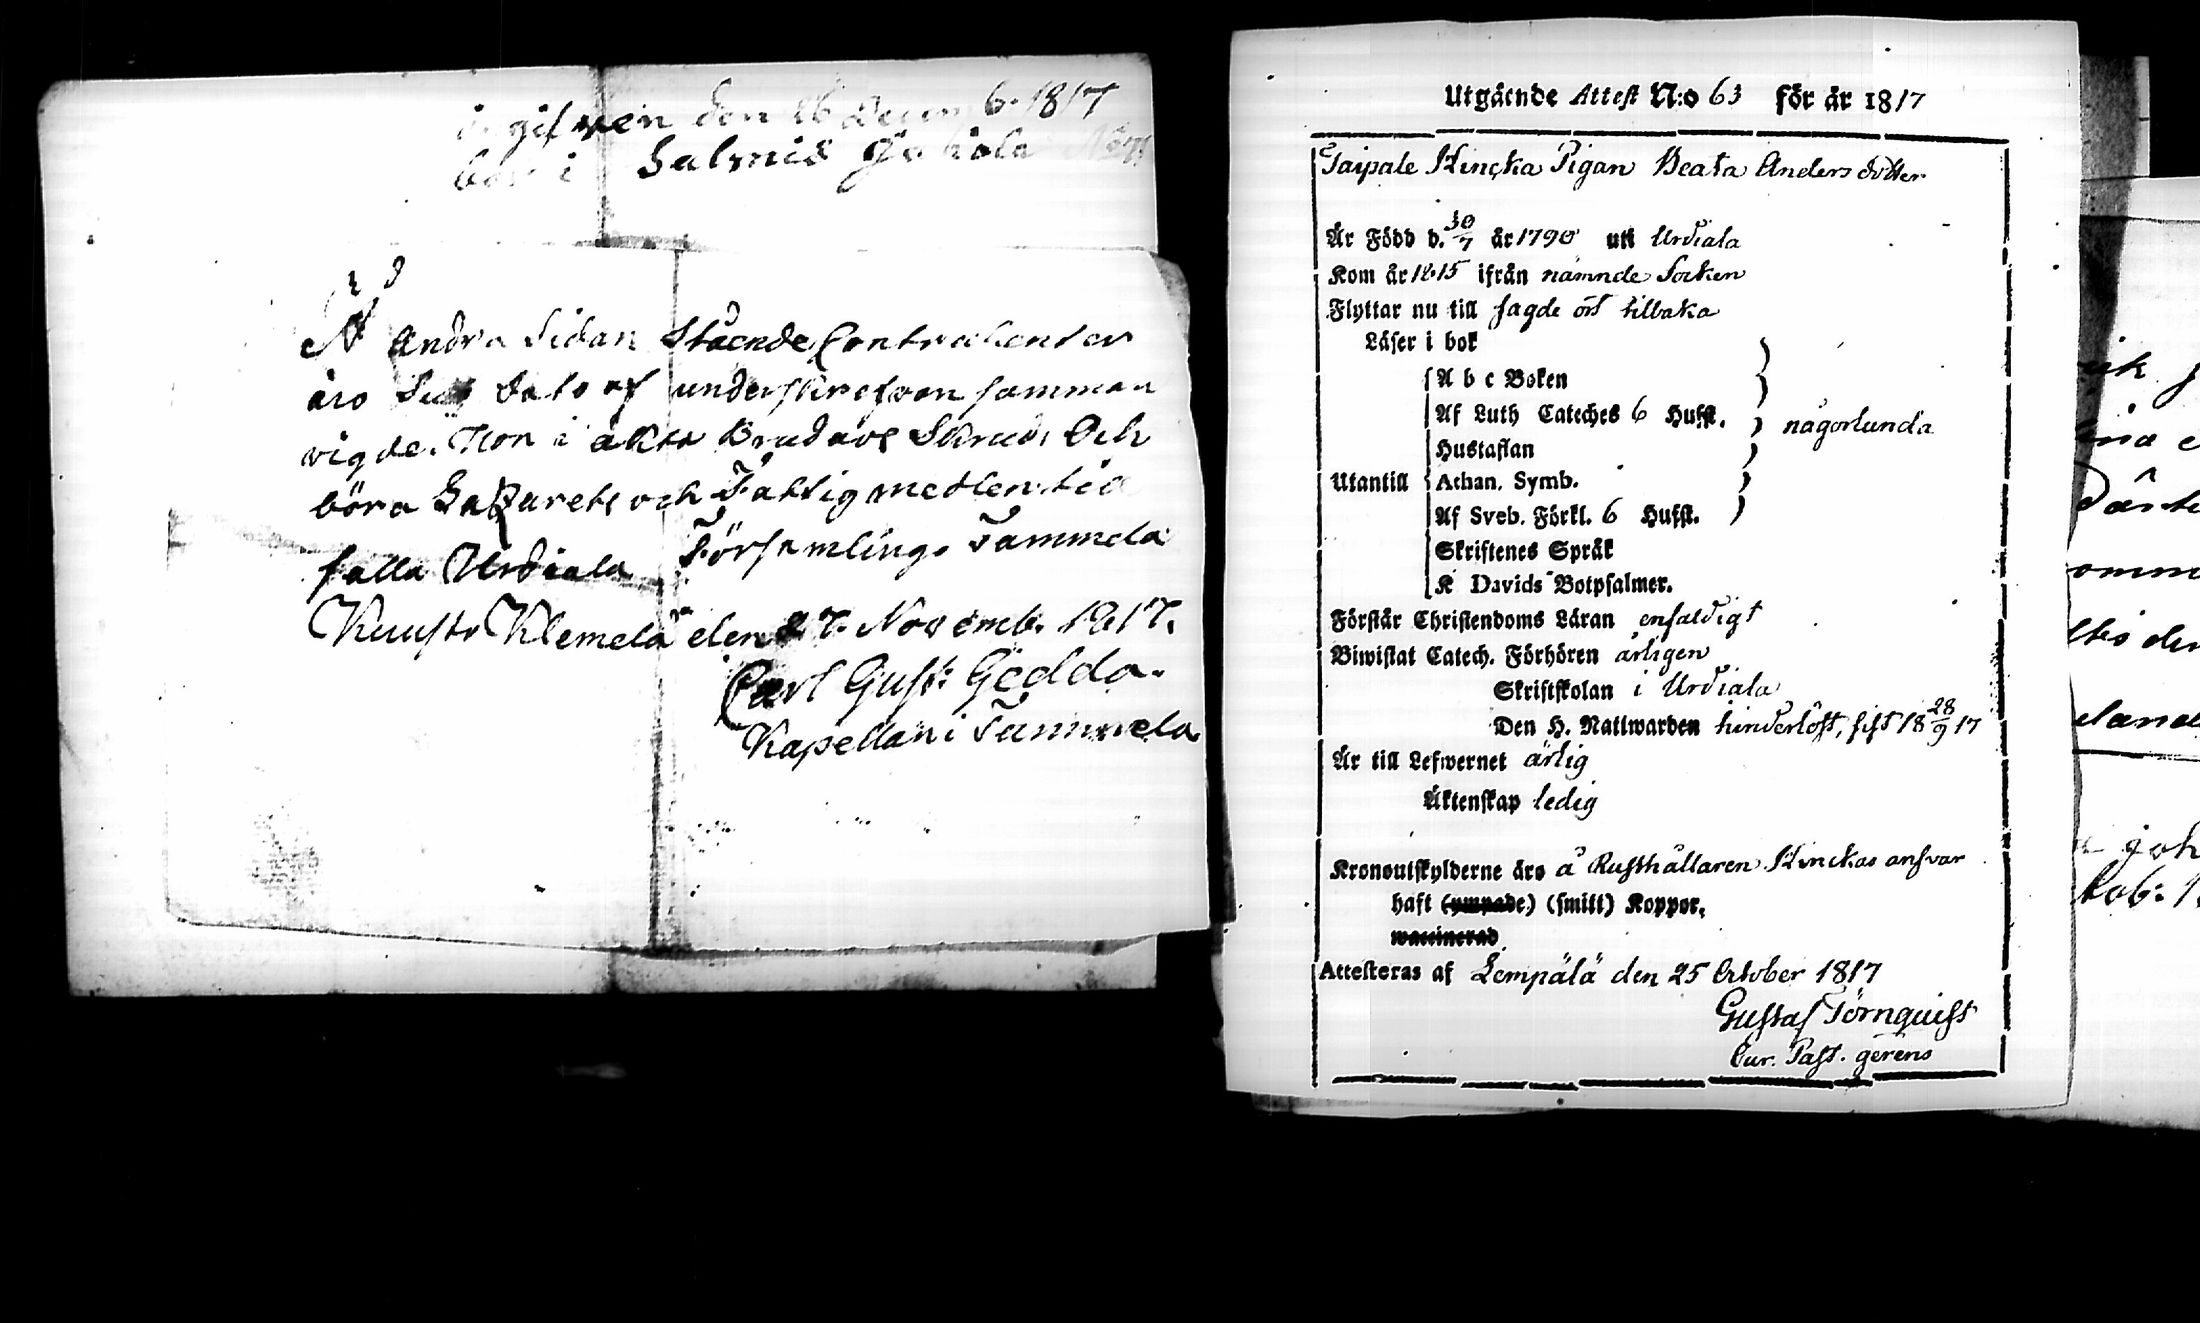 gifven den 16 Decem 6. 1817
i Salmis Jokiola
Å Andra Sidan Stående Contrahenter
äro dato af underskrefven samman
vigde. Hon i äkta Brudars Skrud. Och
böra Lazarets och Fattigmedlen till
falla Urdiala Församling. Tammela
Kuusto Klemelä den 27. Novemb. 1817.
Carl Gust: Gedda.
Kapellan i Tammela
Utgående Attest N:o 63 för år 1817
Taipale Kincka Pigan Beata Andersdotter
Är Född d. 30/7 år 1790 uti Urdiala
Kom år 1815 ifrån nämnde Socken
Flyttar nu till sagde ort tilbaka
Läser i bok
A b c Boken
Af Luth Cateches 6 Hufst. någorlunda
Hustaflan
Utantill Athan. Symb.
Af Sveb. Förkl. 6 Hufst.
Skriftenes Språk
K Davids Botpsalmer.
Förstår Christendoms Läran enfaldigt
Biwistat Catech. Förhören årligen
Skriftskolan i Urdiala
Den H. Nattwarden hinderlöst, sist 18 28/9 17
Är till Lefwernet ärlig
Äktenskap ledig
Kronoutskylderne äro å Rusthållaren Kinckas answar
haft (ympade) (smitt) Koppor.
waccinerad
Attesteras af Lempälä den 25 October 1817
Gustaf Törnquist
Cur. Past. gerens